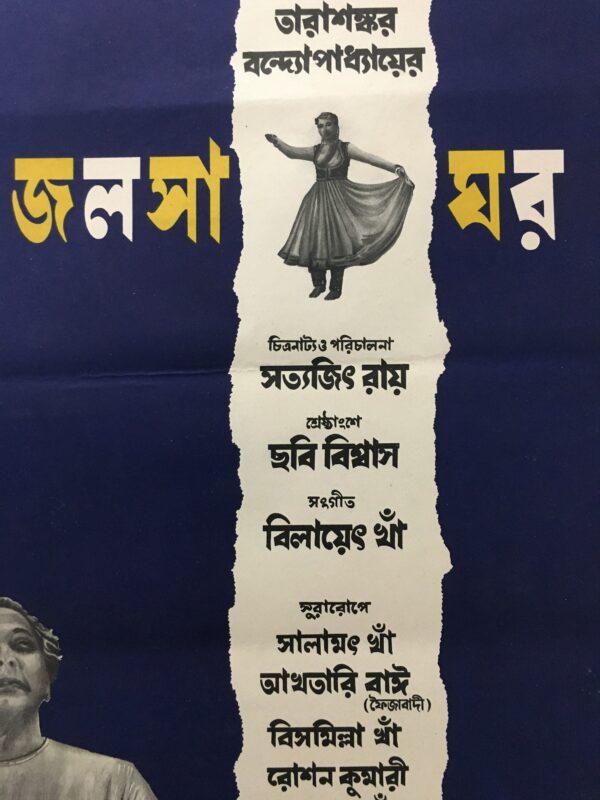 তারাশঙ্কর
বন্দ্যোপাধ্যায়ের
জলসা ঘর
চিত্রনাট্য ও পরিচালনা
সত্যজিৎ রায়
শ্রেষ্ঠাংশে
ছবি বিশ্বাস
সংগীত
বিলায়েৎ খাঁ
সুরারোপে
সালামৎ খাঁ
আখতারি বাঈ
(ফৈজাবাদী)
বিসমিল্লা খাঁ
রোশন কুমারী